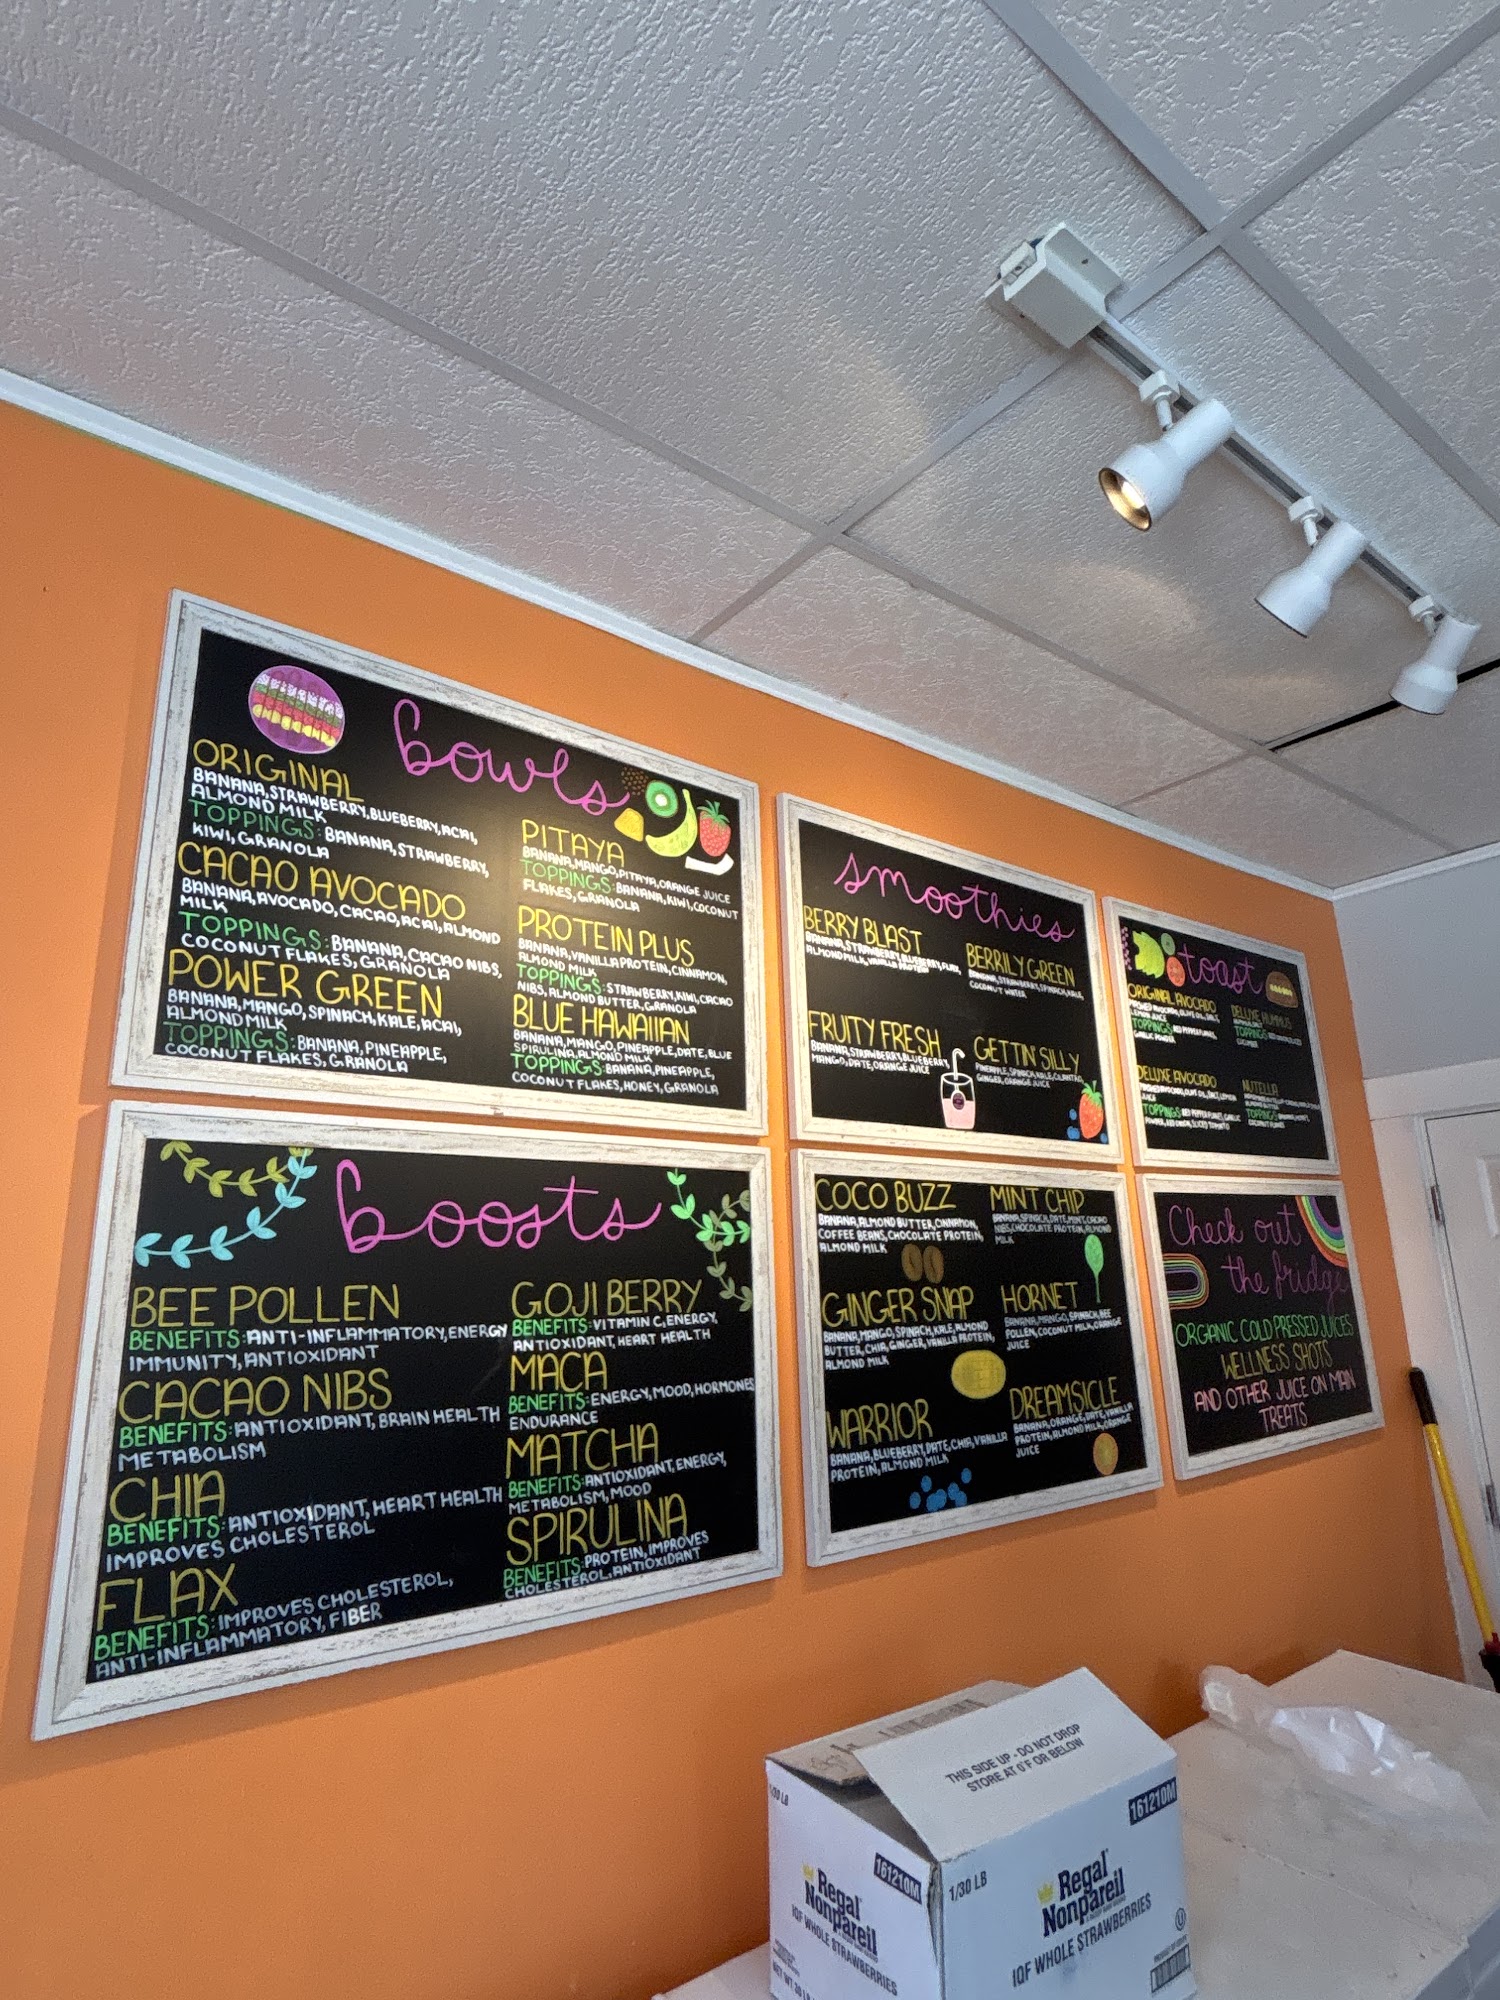 bowls
ORIGINAL
BANANA, STRAWBERRY, BLUEBERRY, ACAI,
ALMOND MILK
TOPPINGS: BANANA, STRAWBERRY,
KIWI, GRANOLA
CACAO AVOCADO
BANANA, AVOCADO, CACAO, ACAI, ALMOND
MILK,
TOPPINGS: BANANA, CACAO NIBS,
COCONUT FLAKES, GRANOLA
POWER GREEN
BANANA, MANGO, SPINACH, KALE, ACAI,
ALMOND MILK
TOPPINGS: BANANA, PINEAPPLE,
COCONUT FLAKES, GRANOLA
PITAYA
BANANA, MANGO, PITAYA, ORANGE JUICE
TOPPINGS: BANANA, KIWI, COCONUT
FLAKES, GRANOLA
PROTEIN PLUS
BANANA, VANILLA PROTEIN, CINNAMON,
ALMOND MILK
TOPPINGS: STRAWBERRY, KIWI, CACAO
NIBS, ALMOND BUTTER, GRANOLA
BLUE HAWAIIAN
BANANA, MANGO, PINEAPPLE, DATE, BLUE
SPIRULINA, ALMOND MILK
TOPPINGS: BANANA, PINEAPPLE,
COCONUT FLAKES, HONEY, GRANOLA
smoothies
BERRY BLAST
BANANA, STRAWBERRY, BLUEBERRY, FLAX,
ALMOND MILK, VANILLA PROTEIN
FRUITY FRESH
BANANA, STRAWBERRY, BLUEBERRY,
MANGO, DATE, ORANGE JUICE
BERRILY GREEN
BANANA, STRAWBERRY, SPINACH, KALE,
COCONUT WATER
GETTIN' SILLY
PINEAPPLE, SPINACH, KALE, CILANTRO,
GINGER, ORANGE JUICE
toast
ORIGINAL AVOCADO
AVOCADO, OLIVE OIL, SALT,
LEMON JUICE
TOPPINGS: RED PEPPER FLAKES,
GARLIC POWDER
DELUXE AVOCADO
AVOCADO, OLIVE OIL, SALT, LEMON
JUICE
TOPPINGS: RED PEPPER FLAKES, GARLIC
POWDER, RED ONION, SLICED TOMATO
DELUXE HUMMUS
TOPPINGS:
CUCUMBER
NUTELLA
ALMOND BUTTER
TOPPINGS:
COCONUT FLAKES
boosts
BEE POLLEN
BENEFITS: ANTI-INFLAMMATORY, ENERGY
IMMUNITY, ANTIOXIDANT
CACAO NIBS
BENEFITS: ANTIOXIDANT, BRAIN HEALTH
METABOLISM
CHIA
BENEFITS: ANTIOXIDANT, HEART HEALTH
IMPROVES CHOLESTEROL
FLAX
BENEFITS: IMPROVES CHOLESTEROL,
ANTI-INFLAMMATORY, FIBER
GOJI BERRY
BENEFITS: VITAMIN C, ENERGY,
ANTIOXIDANT, HEART HEALTH
MACA
BENEFITS: ENERGY, MOOD, HORMONES
ENDURANCE
MATCHA
BENEFITS: ANTIOXIDANT, ENERGY,
METABOLISM, MOOD
SPIRULINA
BENEFITS: PROTEIN, IMPROVES
CHOLESTEROL, ANTIOXIDANT
COCO BUZZ
BANANA, ALMOND BUTTER, CINNAMON,
COFFEE BEANS, CHOCOLATE PROTEIN,
ALMOND MILK
GINGER SNAP
BANANA, MANGO, SPINACH, KALE, ALMOND
BUTTER, CHIA, GINGER, VANILLA PROTEIN,
ALMOND MILK
WARRIOR
BANANA, BLUEBERRY, DATE, CHIA, VANILLA
PROTEIN, ALMOND MILK
MINT CHIP
BANANA, SPINACH, DATE, MINT, CACAO
NIBS, CHOCOLATE PROTEIN, ALMOND
MILK
HORNET
BANANA, MANGO, SPINACH, BEE
POLLEN, COCONUT MILK, ORANGE
JUICE
DREAMSICLE
BANANA, ORANGE, DATE, VANILLA
PROTEIN, ALMOND MILK, ORANGE
JUICE
Check out
the fridge
ORGANIC COLD PRESSED JUICES
WELLNESS SHOTS
AND OTHER JUICE ON MAIN
TREATS
THIS SIDE UP - DO NOT DROP
STORE AT 0°F OR BELOW
161210M
1/30 LB
Regal
Nonpareil
IQF WHOLE STRAWBERRIES
161210M
1/30 LB
Regal
Nonpareil
IQF WHOLE STRAWBERRIES